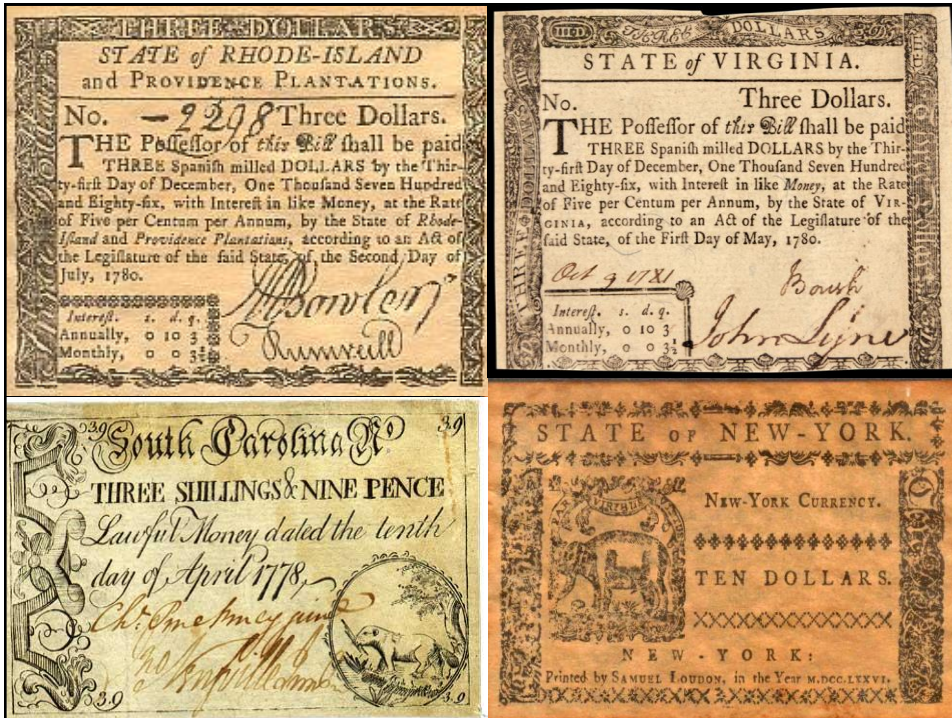 THREE DOLLARS
STATE of RHODE-ISLAND
and PROVIDENCE PLANTATIONS.
No. 2298 Three Dollars.
THE Poſſeſſor of this Bill ſhall be paid
THREE Spaniſh milled DOLLARS by the Thir-
ty-firſt Day of December, One Thouſand Seven Hundred
and Eighty-ſix, with Intereſt in like Money, at the Rate
of Five per Centum per Annum, by the State of Rhode-
Iſland and Providence Plantations, according to an Act of
the Legiſlature of the ſaid State, of the Second Day of
July, 1780.
Intereſt. s. d. q.
Annually, 0 10 3
Monthly, 0 0 3½
DOLLARS
STATE of VIRGINIA.
No. Three Dollars.
THE Poſſeſſor of this Bill ſhall be paid
THREE Spaniſh milled DOLLARS by the Thir-
ty-firſt Day of December, One Thouſand Seven Hundred
and Eighty-ſix, with Intereſt in like Money, at the Rate
of Five per Centum per Annum, by the State of VIR-
GINIA, according to an Act of the Legiſlature of the
ſaid State, of the Firſt Day of May, 1780.
Oct 9 1781
Boush
John Lyne
Intereſt. s. d. q.
Annually, 0 10 3
Monthly, 0 0 3½
39 South Carolina No. 39
THREE SHILLINGS & NINE PENCE
Lawful Money dated the tenth
day of April 1778,
39 39
STATE OF NEW-YORK.
NEW-YORK CURRENCY.
TEN DOLLARS.
NEW-YORK:
Printed by SAMUEL LOUDON, in the Year M.DCC.LXXVI.